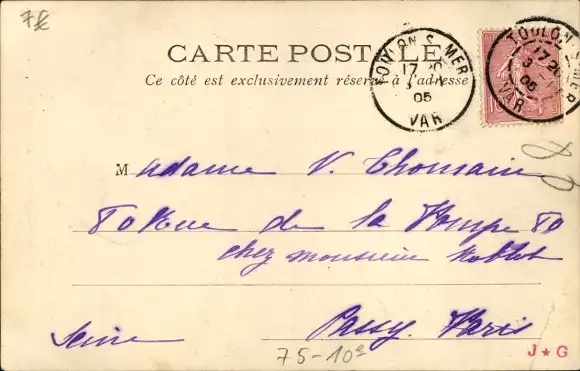 7f
CARTE POSTALE
Ce côté est exclusivement réservé à l'adresse
TOULON S. MER
17
05
VAR
TOULON S. MER
17 20
3
05
VAR
10
Madame V. Thomain
80 Rue de la Pompe 80
chez monsieur Noblet
Seine Passy. Paris
75-10e
J★G